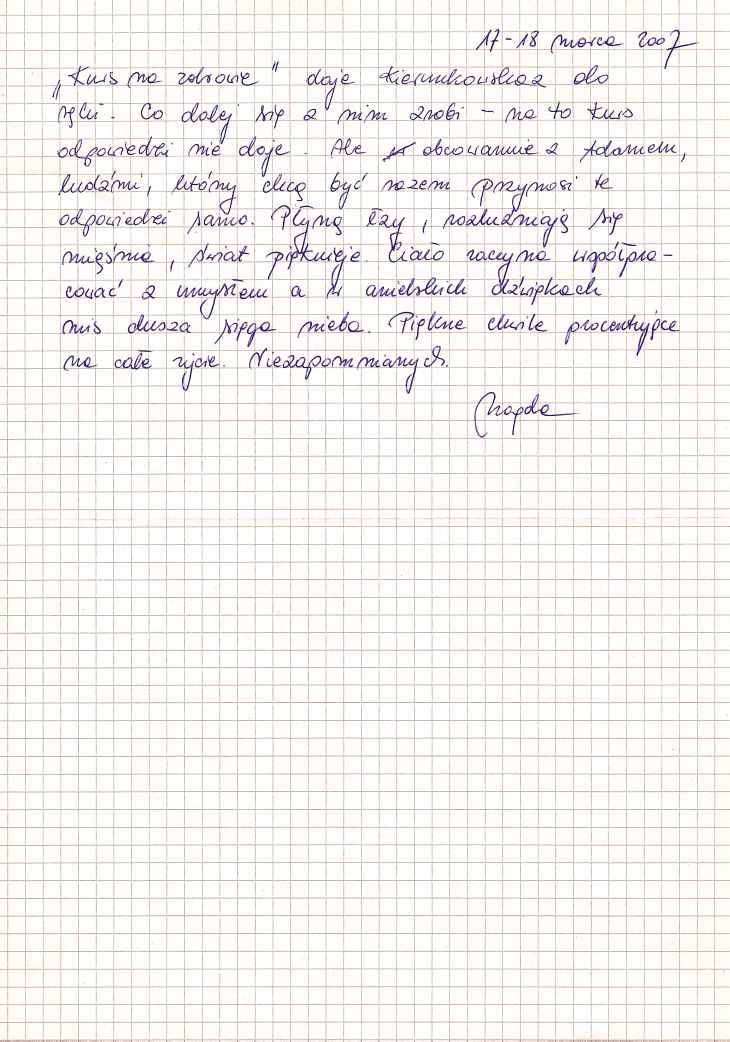 17-18 marca 2007
„Kurs na zdrowie" daje kierunkowskaz do
ręki. Co dalej się z nim zrobi – na to kurs
odpowiedzi nie daje. Ale obcowanie z Adamem,
ludźmi, którzy chcą być razem przynosi te
odpowiedzi samo. Płyną łzy, rozluźniają się
mięśnie, świat pięknieje. Ciało zaczyna współpra-
cować z umysłem a w anielskich dźwiękach
mis dusza sięga nieba. Piękne chwile procentujące
na całe życie. Niezapomnianych.
Magda